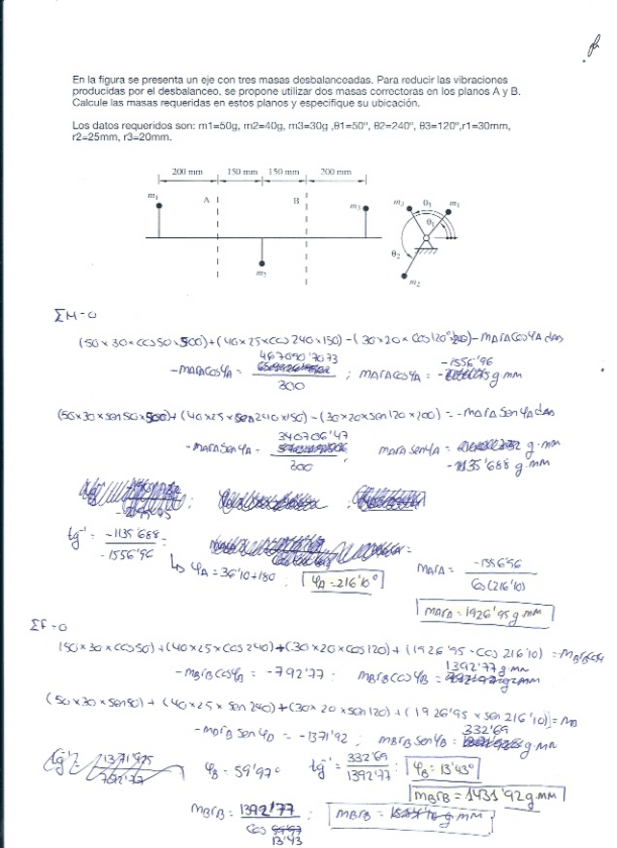 En la figura se presenta un eje con tres masas desbalanceadas. Para reducir las vibraciones
producidas por el desbalanceo, se propone utilizar dos masas correctoras en los planos A y B.
Calcule las masas requeridas en estos planos y especifique su ubicación.
Los datos requeridos son: m1=50g, m2=40g, m3=30g ,θ1=50º, θ2=240º, θ3=120º,r1=30mm,
r2=25mm, r3=20mm.
200 mm 150 mm 150 mm 200 mm
m1 A B m3 m3 θ3 m1
θ1
θ2
m2 m2
ΣM=0
(50×30×cos50×500)+(40×25×cos240×150)-(30×20×cos120°×200)-mArAcosφA
-mArAcosφA = 467090'7073 / 300 ; mArAcosφA = -1556'96 g·mm
(50×30×sen50×500)+(40×25×sen240×150)-(30×20×sen120×200) = -mArA senφA
-mArAsenφA = 340706'47 / 300 ; mArAsenφA = -1135'688 g·mm
tg⁻¹ = -1135'688 / -1556'96 =
↳ φA = 36'10+180 ; φA = 216'10°
mArA = -1556'96 / cos(216'10)
mArA = 1926'95 g·mm
ΣF=0
(50×30×cos50)+(40×25×cos240)+(30×20×cos120)+(1926'95·cos 216'10) =
-mBrBcosφB = -792'77 ; mBrBcosφB = 1392'77 g·mm
(50×30×sen50)+(40×25×sen240)+(30×20×sen120)+(1926'95×sen216'10)=
-mBrB senφB = -1371'92 ; mBrBsenφB = 332'69 g·mm
φB = 59'97° tg⁻¹ = 332'69 / 1392'77 ; φB = 13'43°
mBrB = 1431'92 g·mm
mBrB = 1392'77 / cos 13'43 ; mBrB = g·mm